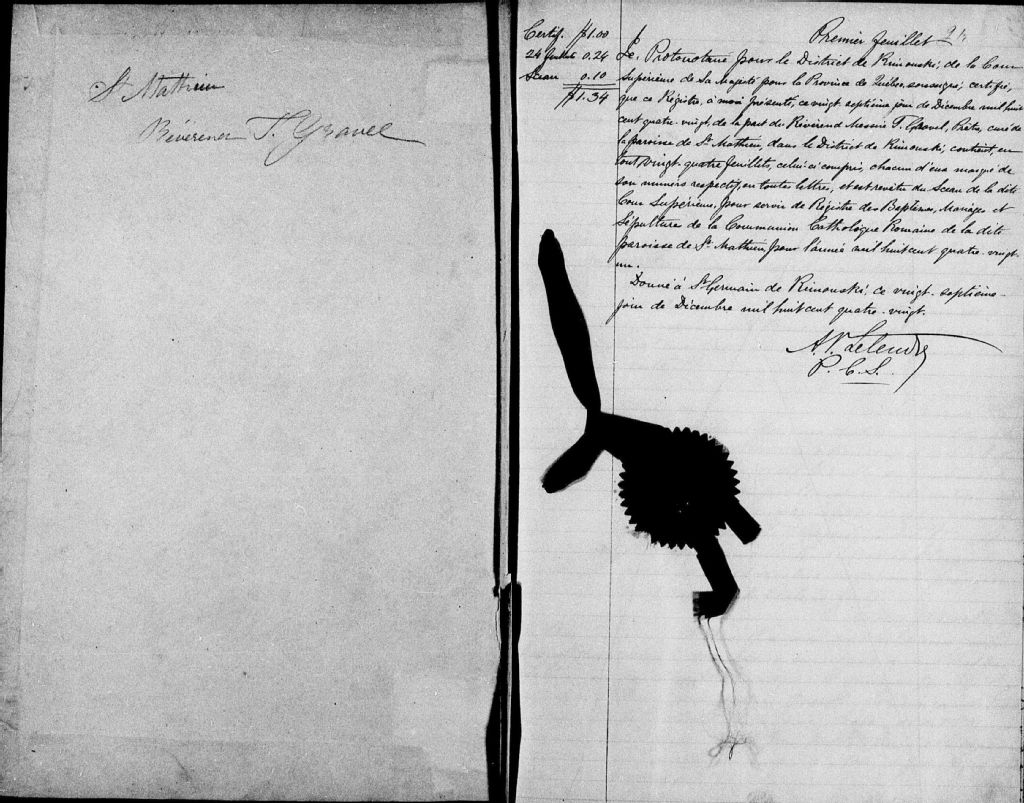 St Mathieu
Révérend T. Gravel
Premier feuillet
Certif. $1.00
24 feuillets 0.24
Sceau 0.10
$1.34
Je, Protonotaire pour le District de Rimouski, de la Cour
Supérieure de Sa Majesté pour la Province de Québec, soussigné, certifie,
que ce Régistre, à moi présenté, ce vingt septième jour de Décembre mil huit
cent quatre-vingt, de la part du Révérend Messire T. Gravel, Prêtre, curé de
la paroisse de St Mathieu, dans le District de Rimouski, contient, en
tout, vingt-quatre feuillets, celui-ci compris, chacun d'eux marqué de
son numéro respectif, en toutes lettres, et est revêtu du Sceau de la dite
Cour Supérieure, pour servir de Régistre des Baptêmes, Mariages et
Sépulture de la Communion Catholique Romaine de la dite
paroisse de St Mathieu, pour l'année mil huit cent quatre-vingt-
un.
Donné à St Germain de Rimouski, ce vingt-septième
jour de Décembre mil huit cent quatre-vingt.
A. P. Letendre
P. C. S.